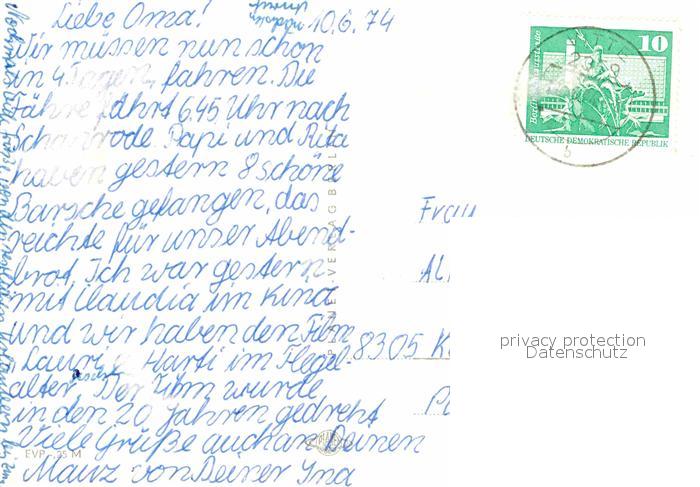 Liebe Oma! 10.6.74
Wir müssen nun schon
in 4 Tagen, fahren. Die
Fähre fährt 6.45 Uhr nach
Schaprode. Papi und Rita
haben gestern 8 schöne
Barsche gefangen, das
reichte für unser Abend-
brot. Ich war gestern
mit Claudia im Kino
und wir haben den Film
Lauri & Harti im Flegel-
alter gesehen. Der Film wurde
in den 20 Jahren gedreht
Viele Grüße auch an Deinen
Mauz von Deiner Ina
Nochmals
PLANET-VERLAG
EVP -,25 M
Frau
8305 K
10
DEUTSCHE DEMOKRATISCHE REPUBLIK
privacy protection
Datenschutz